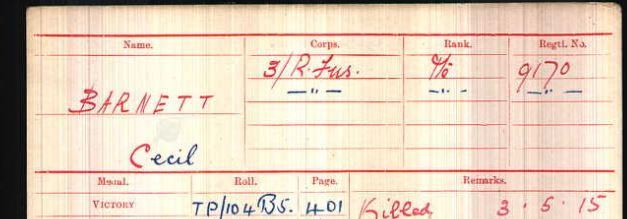 Name. Corps. Rank. Regtl. No.
3/R. Fus. 9170
BARNETT —"— —"— —"—
Cecil
Medal. Roll. Page. Remarks.
VICTORY TP/104 B5. 401 Killed 3.5.15